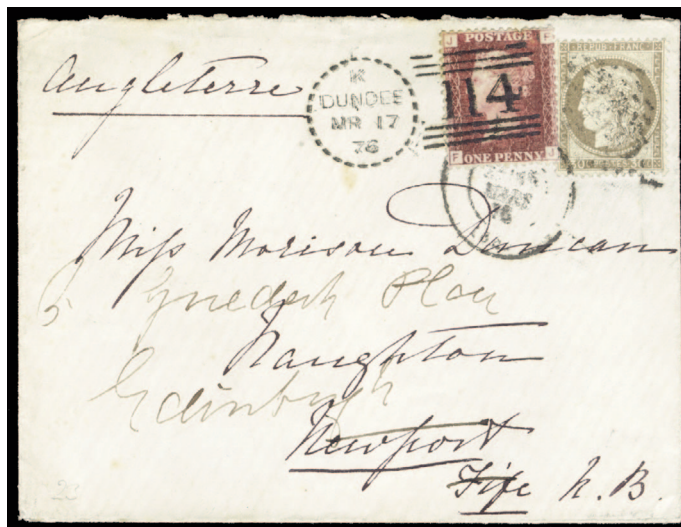 Angleterre
K
DUNDEE
MR 17
76
J POSTAGE F
114
F ONE PENNY J
REPUB FRANC
MARS
76
Miss Morison Duncan
5
Naughton
Edinburgh
Newport
Fife N. B.
23